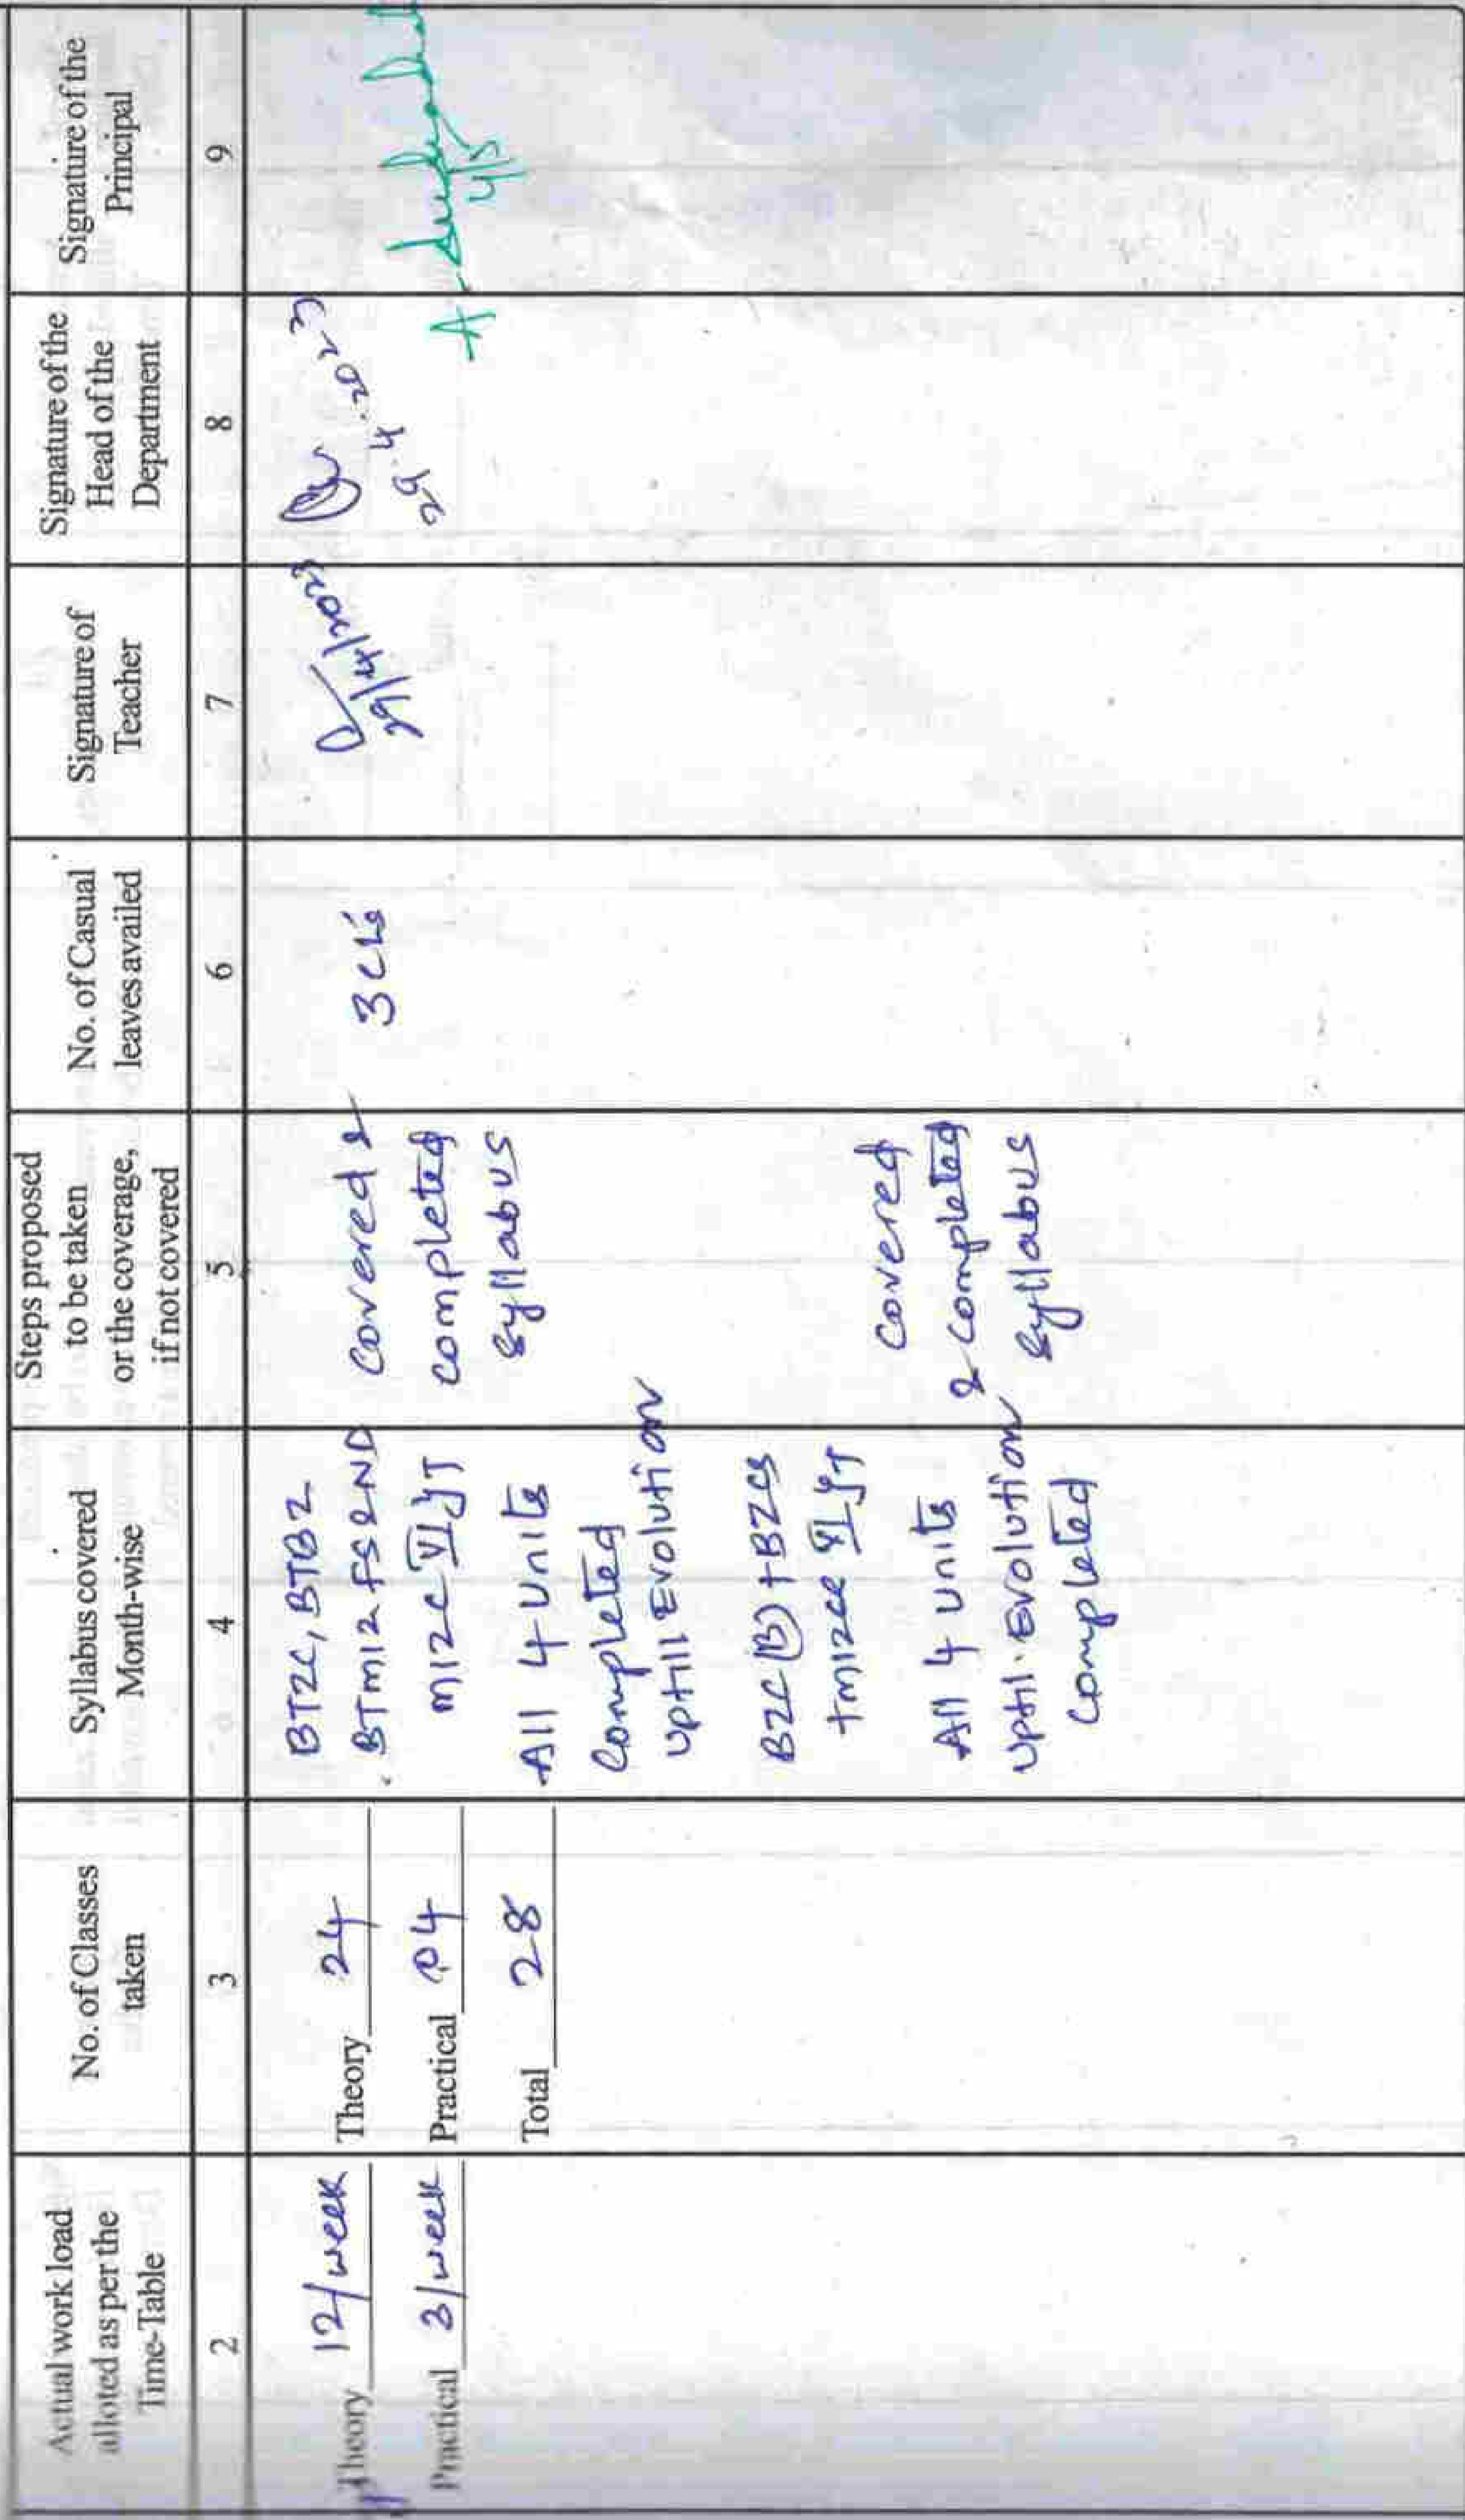 Actual work load
alloted as per the
Time-Table
No. of Classes
taken
Syllabus covered
Month-wise
Steps proposed
to be taken
or the coverage,
if not covered
No. of Casual
leaves availed
Signature of
Teacher
Signature of the
Head of the
Department
Signature of the
Principal
2
3
4
5
6
7
8
9
Theory 12/week
Practical 3/week
Theory 24
Practical 04
Total 28
BTZC, BTBZ
BTMIZ FS&ND
MIZC VI
All 4 Units
Completed
uptill Evolution
BZC(B) + BZCS
+MIZCE VI
All 4 Units
uptil Evolution
Completed
Covered &
completed
Syllabus
Covered
& Completed
Syllabus
3 CLs
29/4/2023
29.4.2023
4/5